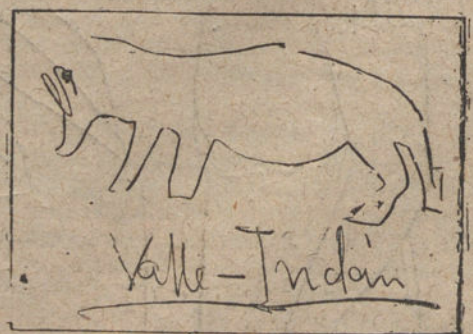 Valle-Indán